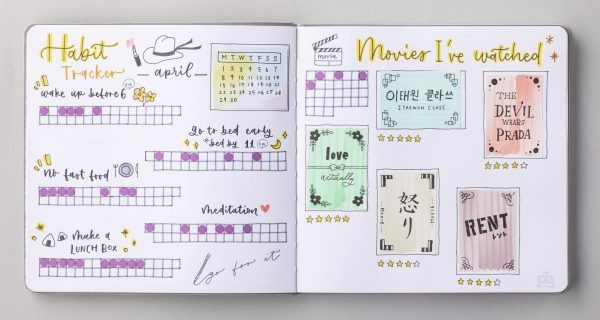 Habit
Tracker
april
M T W T F S S
1 2 3 4 5 6 7
8 9 10 11 12 13 14
15 16 17 18 19 20 21
22 23 24 25 26 27 28
29 30
wake up before 6
go to bed early
*bed by 11
no fast food
meditation
make a
LUNCH BOX
go for it
movie
Movies I've watched
이태원 클라쓰
ITAEWON CLASS
THE
DEVIL
WEARS
PRADA
love
actually
怒り
MOVIE
MOVIE
RENT
レント